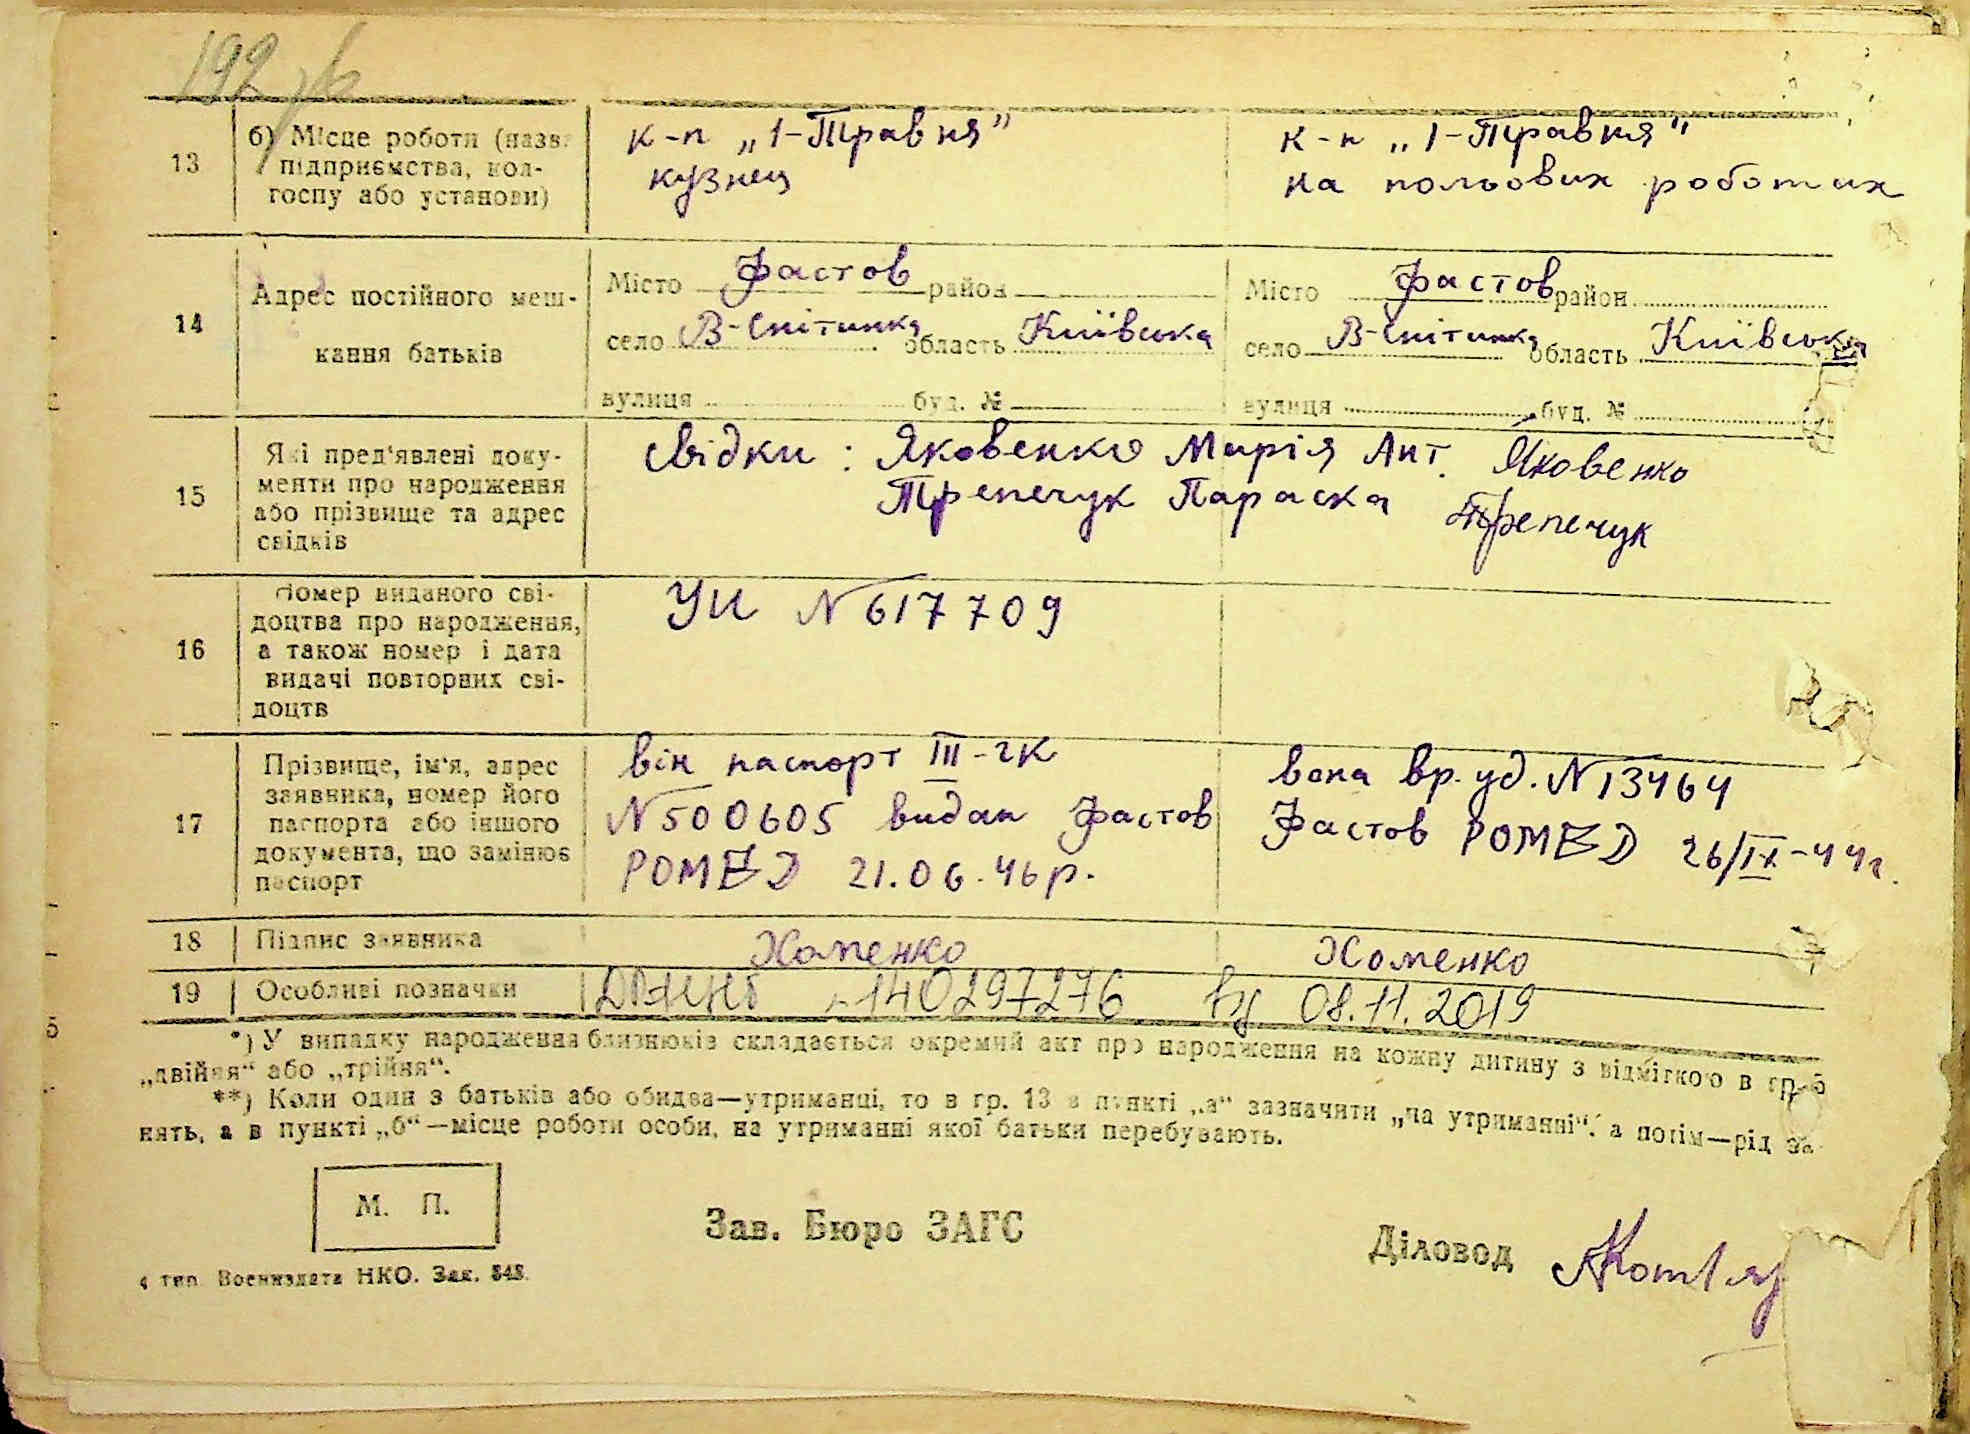 192 зв
13
б) Місце роботи (назва
підприємства, кол-
госпу або установи)
к-п „1-Травня"
кузнец
к-п „1-Травня"
на польових роботах
14
Адрес постійного меш-
кання батьків
Місто Фастов район
село В-Снітинка область Київська
вулиця буд. №
Місто Фастов район
село В-Снітинка область Київська
вулиця буд. №
15
Які пред'явлені доку-
менти про народження
або прізвище та адрес
свідків
свідки: Яковенко Марія Ант. Яковенко
Трепечук Параска Трепечук
16
Номер виданого сві-
доцтва про народження,
а також номер і дата
видачі повторних сві-
доцтв
УИ №617709
17
Прізвище, ім'я, адрес
заявника, номер його
паспорта або іншого
документа, що замінює
паспорт
він паспорт III-ЧК
№500605 видан Фастов
РОМВД 21.06.46р.
вона вр. уд. №13464
Фастов РОМВД 26/IX-44г.
18
Підпис заявника
Хоменко
Хоменко
19
Особливі позначки
140297276 від 08.11.2019
*) У випадку народження близнюків складається окремий акт про народження на кожну дитину з відміткою в гр. 5
„двійня" або „трійня".
**) Коли один з батьків або обидва—утриманці, то в гр. 13 в пункті „а" зазначити „на утриманні", а потім—рід за-
нять, а в пункті „б"—місце роботи особи, на утриманні якої батьки перебувають.
М. П.
Зав. Бюро ЗАГС
Діловод Котляр
4 тип. Воениздата НКО. Зак. 848.